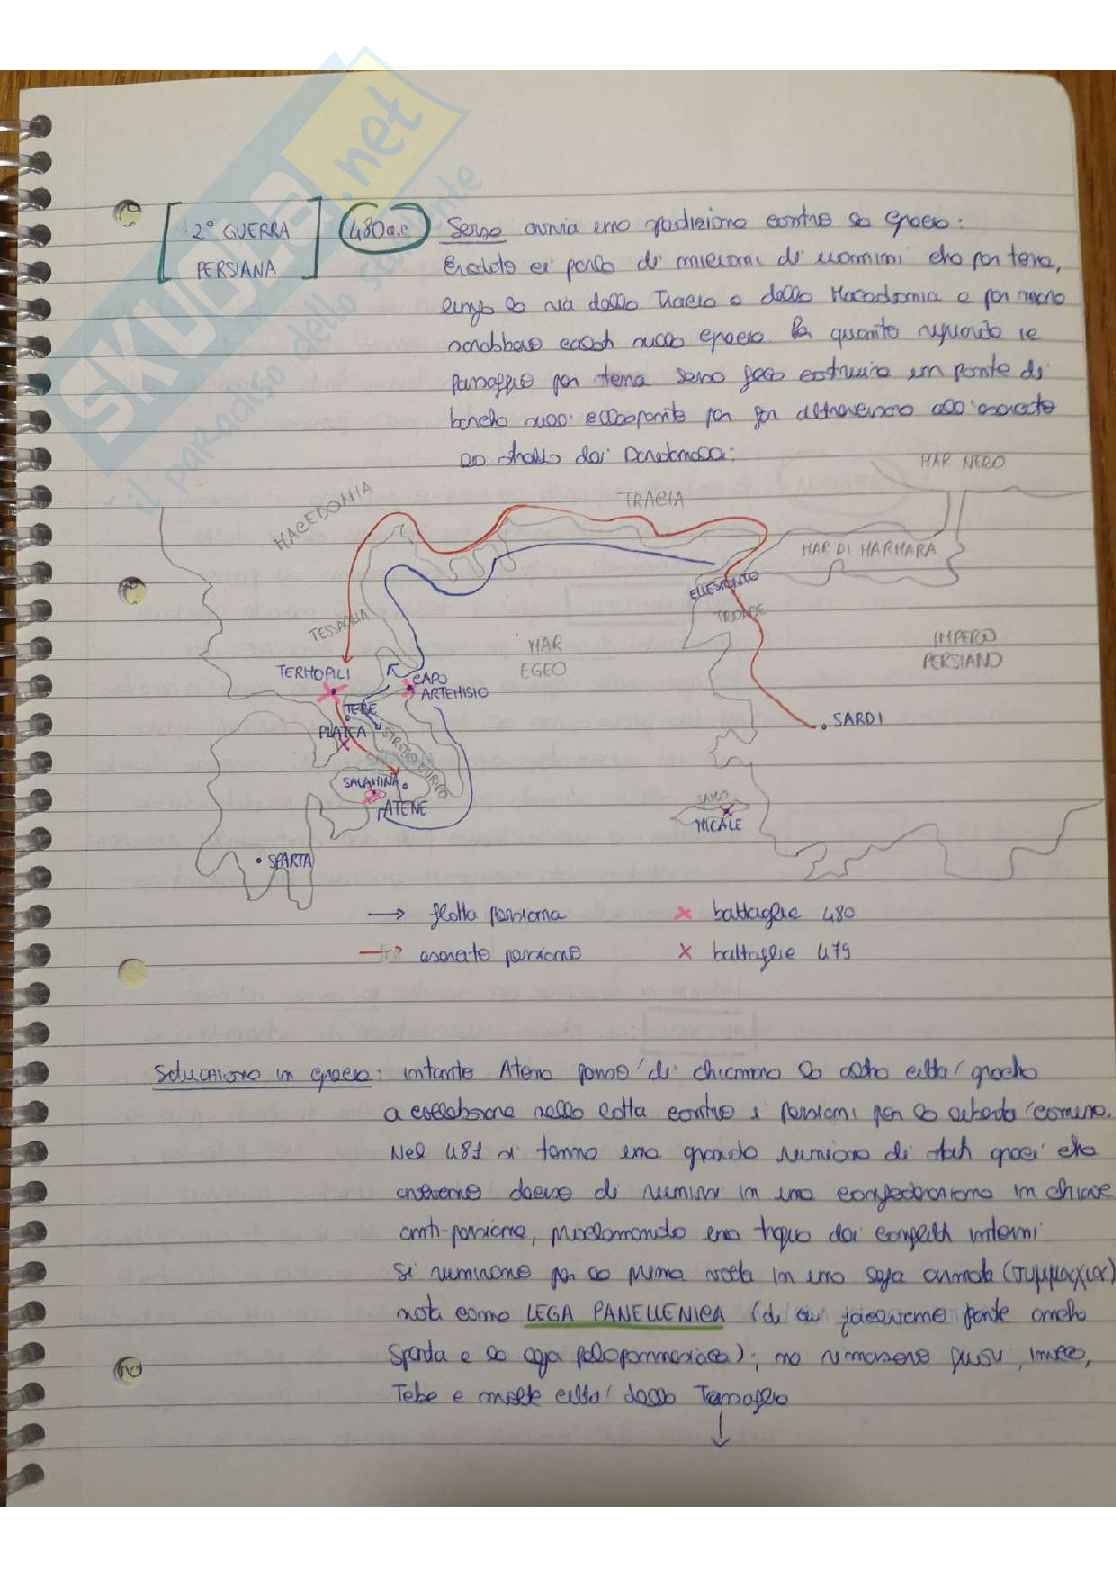 SKUOLA.net
il paradiso dello studente
2° GUERRA
PERSIANA
480 a.C
Serse avvia una spedizione contro la Grecia:
Erodoto ci parla di milioni di uomini che per terra,
lungo la via della Tracia e della Macedonia e per mare
sarebbero nella Grecia. Per quanto riguarda il
passaggio per terra Serse fece costruire un ponte di
barche sull'Ellesponto per far attraversare all'esercito
lo stretto dei Dardanelli:
MAR NERO
MACEDONIA
TRACIA
MAR DI MARMARA
ELLESPONTO
TROADE
TESSAGLIA
MAR
EGEO
IMPERO
PERSIANO
TERMOPILI
CAPO
ARTEMISIO
TEBE
PLATEA
SARDI
SALAMINA
ATENE
MICALE
SPARTA
→ flotta persiana
× battaglie 480
→ esercito persiano
× battaglie 479
Situazione in Grecia: intanto Atene pensa di chiamare le altre città greche
a collaborare nella lotta contro i persiani per la libertà comune.
Nel 481 si tenne una grande riunione di stati greci che
decise di riunirsi in una confederazione in chiave
anti-persiana, proclamando una tregua dai conflitti interni
Si riunirono per la prima volta in una lega armata (συμμαχία)
nota come LEGA PANELLENICA (di cui facevano parte anche
Sparta e la lega peloponnesiaca); ne rimasero fuori, invece,
Tebe e molte città della Tessaglia
↓